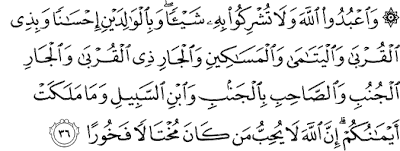 ۞ وَاعْبُدُوا اللَّهَ وَلَا تُشْرِكُوا بِهِ شَيْئًا ۖ وَبِالْوَالِدَيْنِ إِحْسَانًا وَبِذِي
الْقُرْبَىٰ وَالْيَتَامَىٰ وَالْمَسَاكِينِ وَالْجَارِ ذِي الْقُرْبَىٰ وَالْجَارِ
الْجُنُبِ وَالصَّاحِبِ بِالْجَنْبِ وَابْنِ السَّبِيلِ وَمَا مَلَكَتْ
أَيْمَانُكُمْ ۗ إِنَّ اللَّهَ لَا يُحِبُّ مَنْ كَانَ مُخْتَالًا فَخُورًا ﴿٣٦﴾